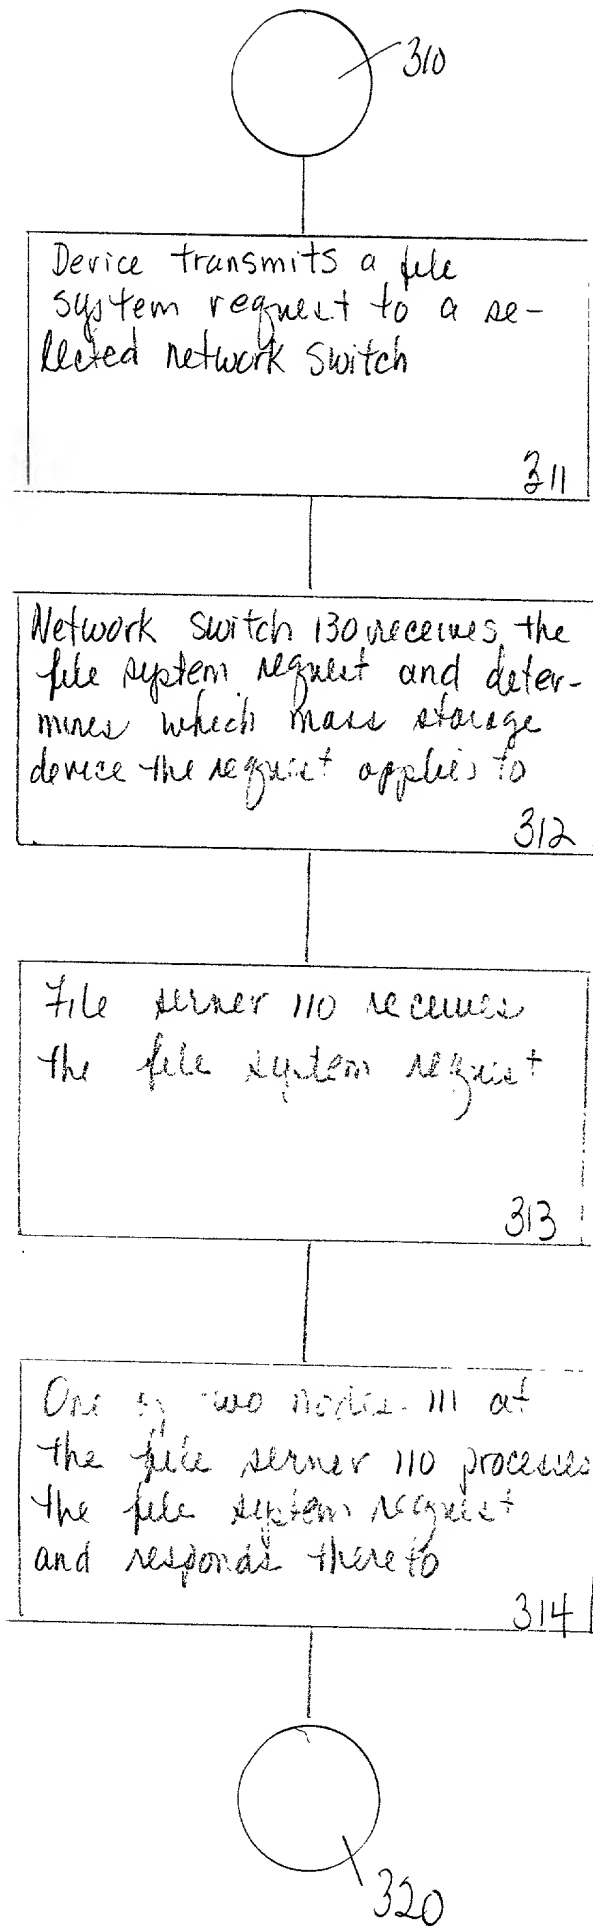 310
Device transmits a file
system request to a se-
lected network switch
311
Network switch 130 receives the
file system request and deter-
mines which mass storage
device the request applies to
312
File server 110 receives
the file system request
313
One of two nodes 111 at
the file server 110 processes
the file system request
and responds thereto
314
320